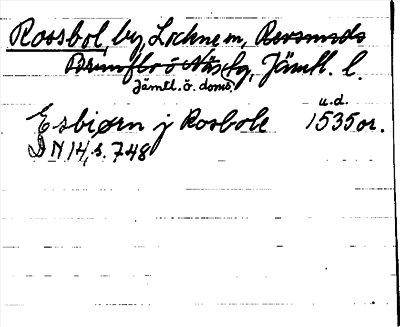 Rossbol, by Lockne sn, Revsunds
Brunflo o Näs tg, Jämtl. l.
Jämtl. ö. doms.
Esbiørn j Rosbole u.d. 1535 or.
DN 14, s. 748